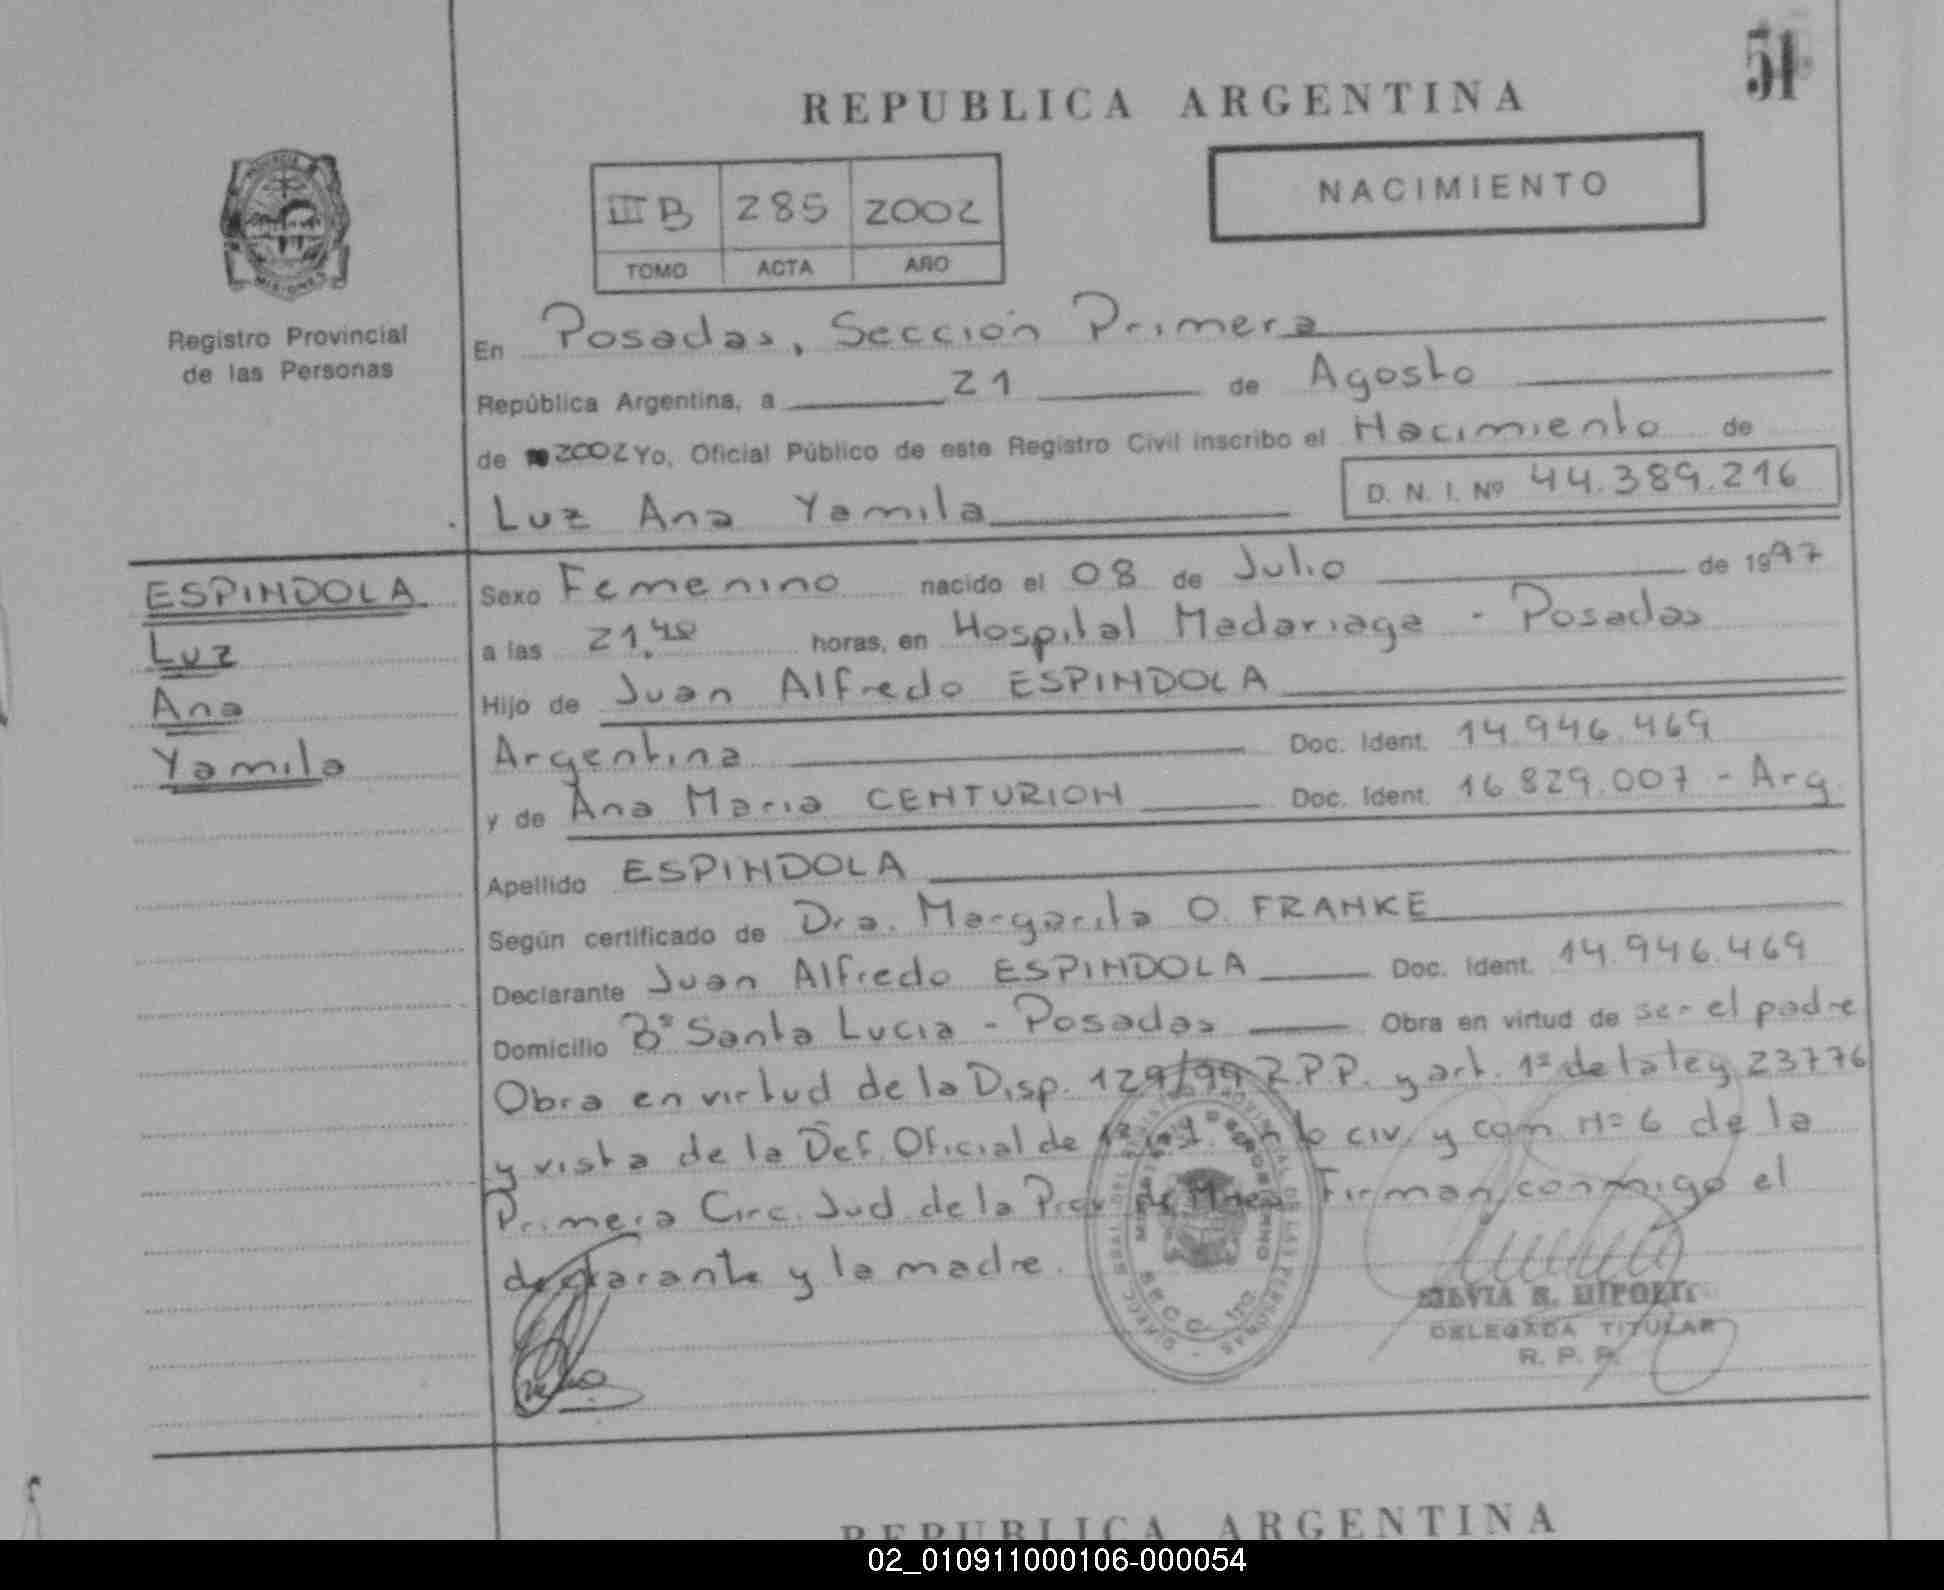 51
REPUBLICA ARGENTINA
III B 285 2002
TOMO ACTA AÑO
NACIMIENTO
Registro Provincial
de las Personas
En Posadas, Sección Primera
República Argentina, a 21 de Agosto
de 2002 Yo, Oficial Público de este Registro Civil inscribo el Nacimiento de
Luz Ana Yamila
D. N. I. Nº 44.389.216
ESPINDOLA
Luz
Ana
Yamila
Sexo Femenino nacido el 08 de Julio de 1997
a las 21.40 horas, en Hospital Madariaga - Posadas
Hijo de Juan Alfredo ESPINDOLA
Argentina Doc. Ident. 14.946.469
y de Ana Maria CENTURION Doc. Ident. 16.829.007 - Arg.
Apellido ESPINDOLA
Según certificado de Dra. Margarita O. FRANKE
Declarante Juan Alfredo ESPINDOLA Doc. Ident. 14.946.469
Domicilio Bº Santa Lucia - Posadas Obra en virtud de ser el padre
Obra en virtud de la Disp. 129/99 R.P.P. y art. 1º de la ley 23776
y vista de la Def. Oficial de 1ª en lo civ. y com Nº 6 de la
Primera Circ. Jud. de la Prov. de Mnes. Firman conmigo el
declarante y la madre.
SILVIA R. HIPOLITO
DELEGADA TITULAR
R. P. P.
REPUBLICA ARGENTINA
02_010911000106-000054